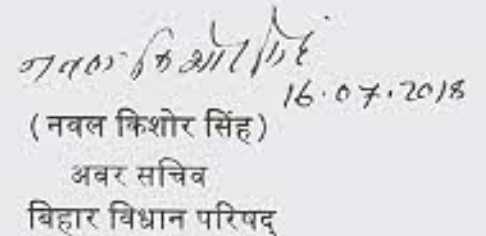 नवल किशोर सिंह
16.07.2018
(नवल किशोर सिंह)
अवर सचिव
बिहार विधान परिषद्